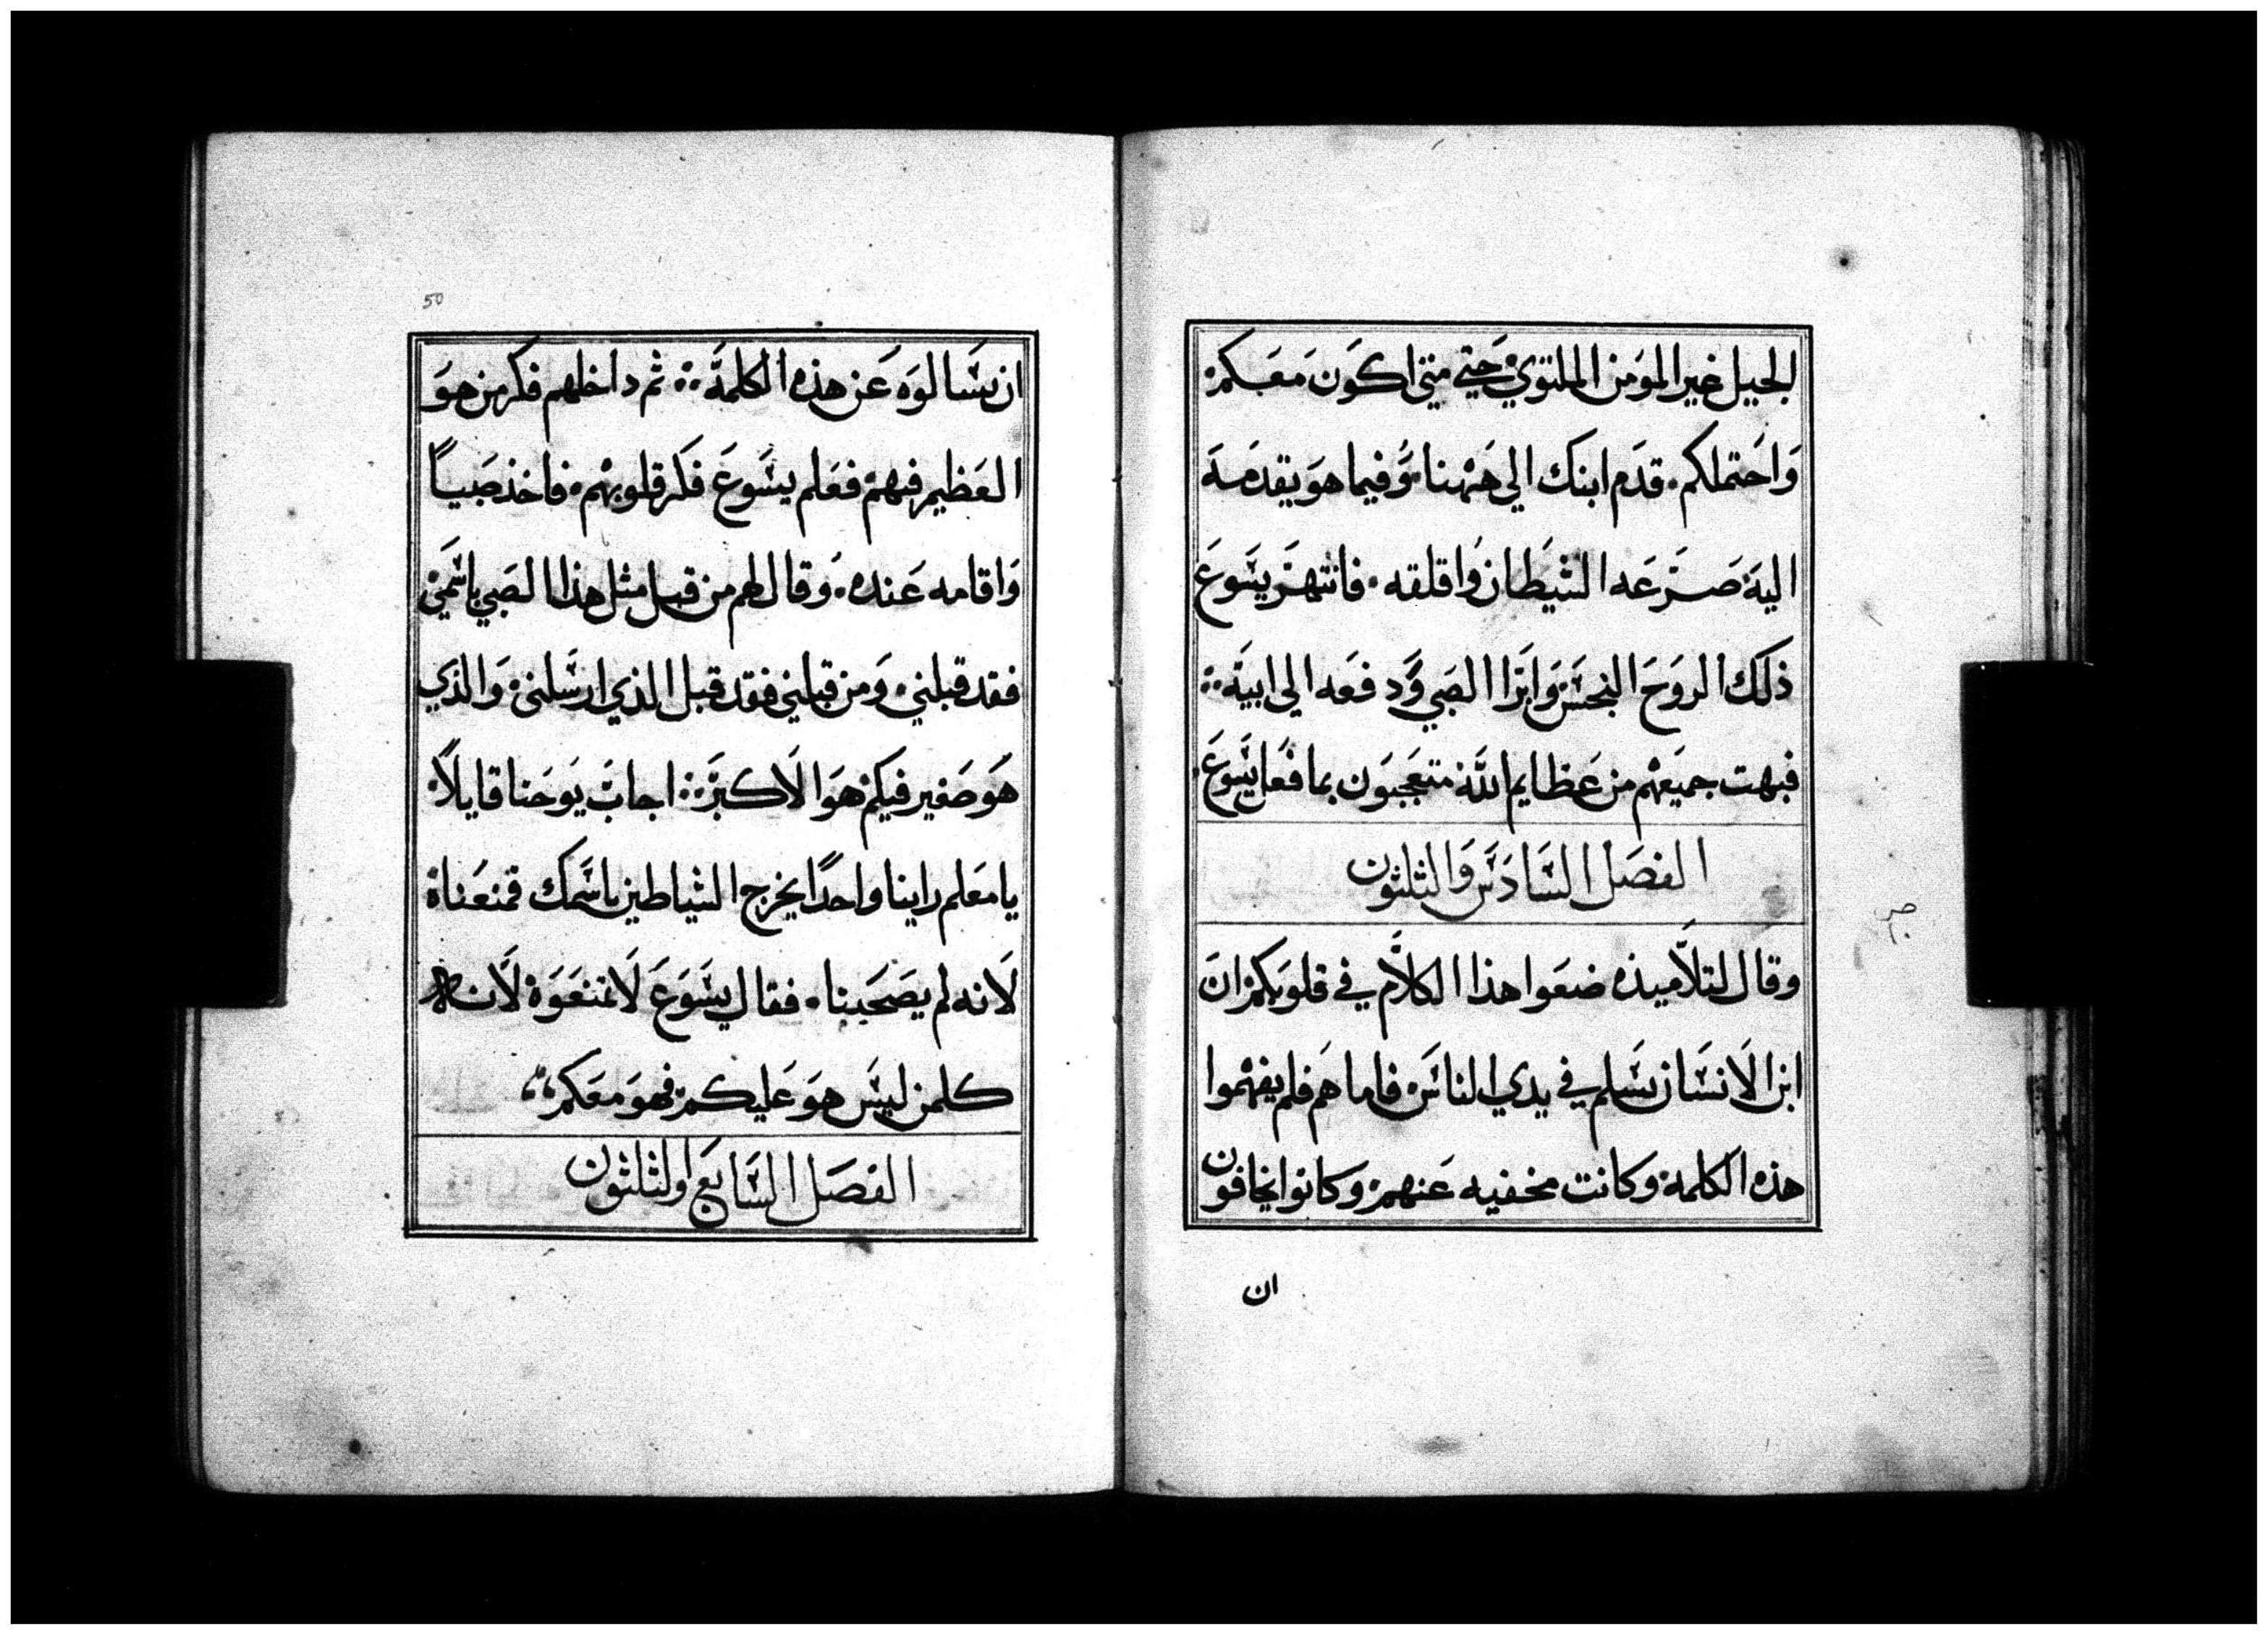 الجيل غير المومن الملتوي حتي متي اكون معكم
واحتملكم. قدم ابنك الي ههنا. وفيما هو يقدمه
اليه صرعه الشيطان واقلقه. فانتهر يسوع
ذلك الروح النجس وابرا الصبي ودفعه الي ابيه
فبهت جميعهم من عظايم الله متعجبون بما فعل يسوع
الفصل السادس والثلثون
وقال لتلاميذه ضعوا هذا الكلام في قلوبكم ان
ابن الانسان يسلم في يدي الناس فاما هم فلم يفهموا
هذه الكلمة وكانت مخفيه عنهم وكانوا يخافون
ان
50
ان يسالوه عن هذه الكلمة ثم داخلهم فكر من هو
العظيم فيهم فعلم يسوع فكر قلوبهم. فاخذ صبياً
واقامه عنده. وقال لهم من قبل مثل هذا الصبي باسمي
فقد قبلني. ومن قبلني فقد قبل الذي ارسلني والذي
هو صغير فيكم هو الاكبر اجاب يوحنا قايلاً
يا معلم راينا واحداً يخرج الشياطين باسمك فمنعناه
لانه لم يصحبنا. فقال يسوع لا تمنعوه لان
كلمن ليس هو عليكم فهو معكم
الفصل السابع والثلثون